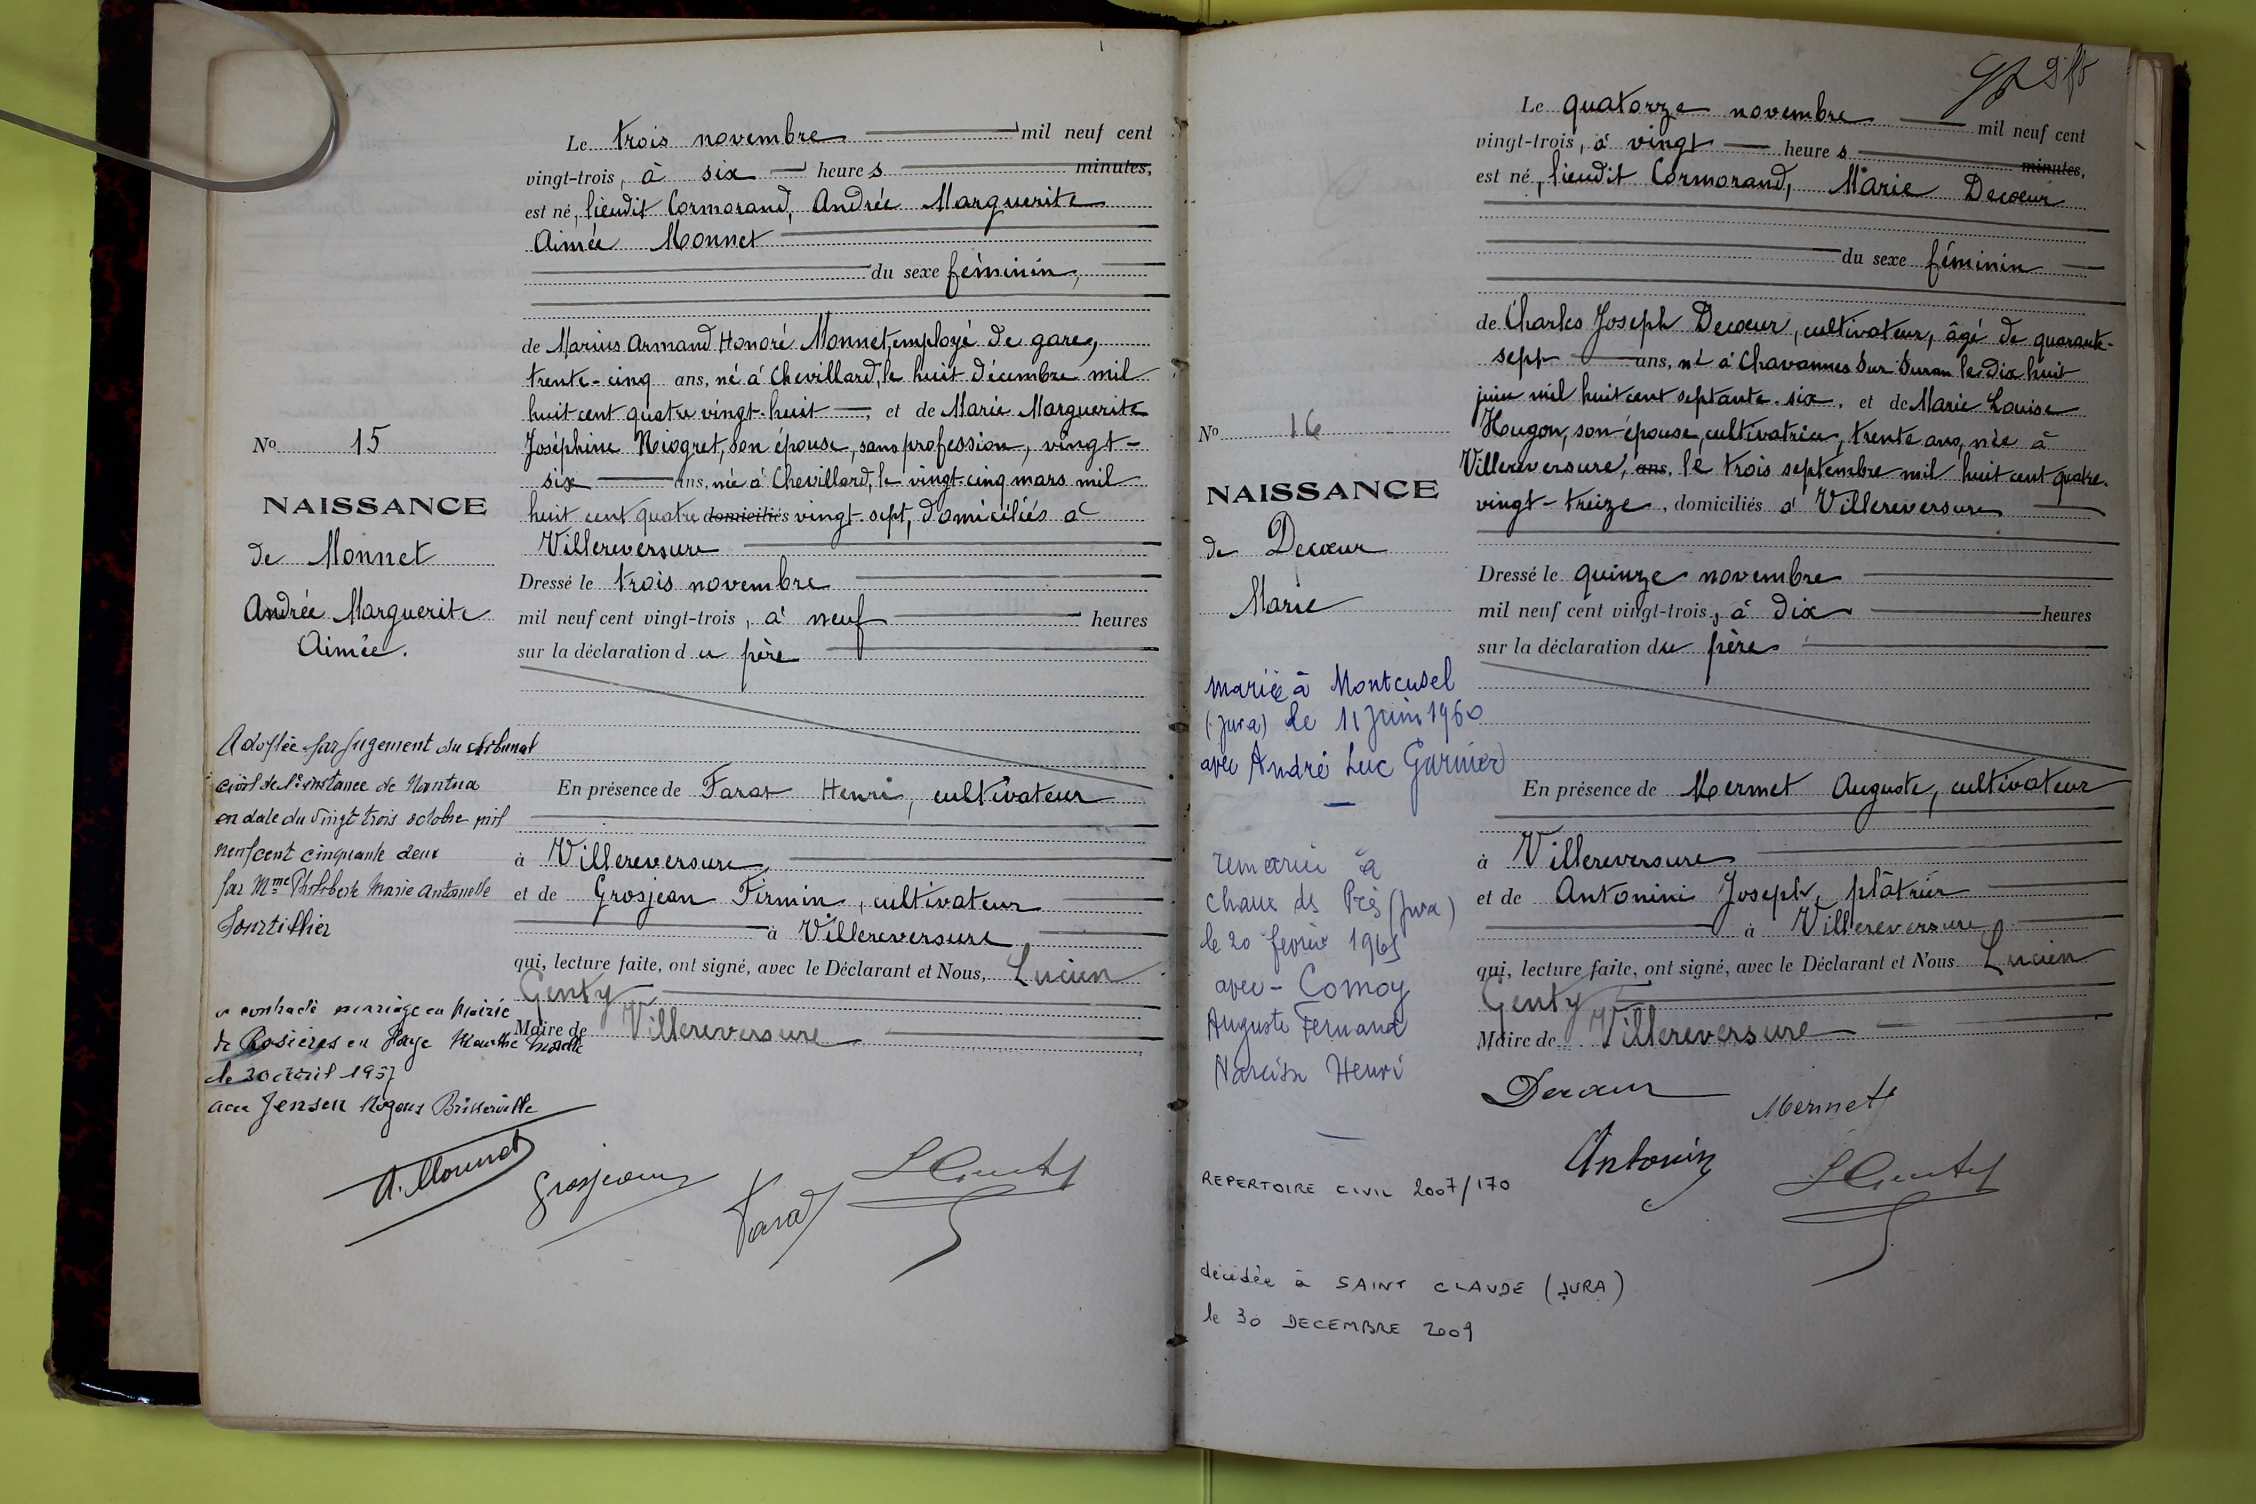 Le trois novembre mil neuf cent
vingt-trois, à six heures minutes,
est né, lieudit Cormorand, Andrée Marguerite
Aimée Monnet
du sexe féminin,
de Marius Armand Honoré Monnet, employé de gare,
trente-cinq ans, né à Chevillard, le huit décembre mil
huit cent quatre vingt-huit, et de Marie Marguerite
Joséphine Neiogret, son épouse, sans profession, vingt-
six ans, née à Chevillard, le vingt-cinq mars mil
huit cent quatre domiciliés vingt-sept, domiciliés à
Villereversure
Dressé le trois novembre
mil neuf cent vingt-trois, à neuf heures
sur la déclaration du père
En présence de Farat Henri, cultivateur
à Villereversure,
et de Grosjean Firmin, cultivateur
à Villereversure
qui, lecture faite, ont signé, avec le Déclarant et Nous, Lucien
Genty
Maire de Villereversure
No 15
NAISSANCE
de Monnet
Andrée Marguerite
Aimée.
Adoptée par jugement du tribunal
civil de 1re instance de Nantua
en date du vingt trois octobre mil
neuf cent cinquante deux
par Mme Philiberte Marie Antonelle
Tourtillier
a contracté mariage en Mairie
de Rosières en Haye Meurthe Moselle
le 20 avril 1957
avec Jensen Mogens
A. Monnet
Grosjean
Farat
L Genty
Le quatorze novembre mil neuf cent
vingt-trois, à vingt heures minutes,
est né, lieudit Cormorand, Marie Decœur
du sexe féminin
de Charles Joseph Decœur, cultivateur, âgé de quarante-
sept ans, né à Chavannes sur Suran le dix huit
juin mil huit cent septante-six, et de Marie Louise
Hugon, son épouse, cultivatrice, trente ans, née à
Villereversure, ans, le trois septembre mil huit cent quatre-
vingt-treize, domiciliés à Villereversure
Dressé le quinze novembre
mil neuf cent vingt-trois, à dix heures
sur la déclaration du père
En présence de Mermet Auguste, cultivateur
à Villereversure
et de Antonini Joseph, plâtrier
à Villereversure
qui, lecture faite, ont signé, avec le Déclarant et Nous Lucien
Genty
Maire de Villereversure
No 16
NAISSANCE
de Decœur
Marie
mariée à Montcusel
(Jura) le 11 juin 1960
avec André Luc Garnier
remariée à
Chaux des Prés (Jura)
le 20 février 1965
avec - Comoy
Auguste Fernand
Narcisse Henri
REPERTOIRE CIVIL 2007/170
décédée à SAINT CLAUDE (JURA)
le 30 DECEMBRE 2009
Decœur
Mermet
Antonini
L Genty